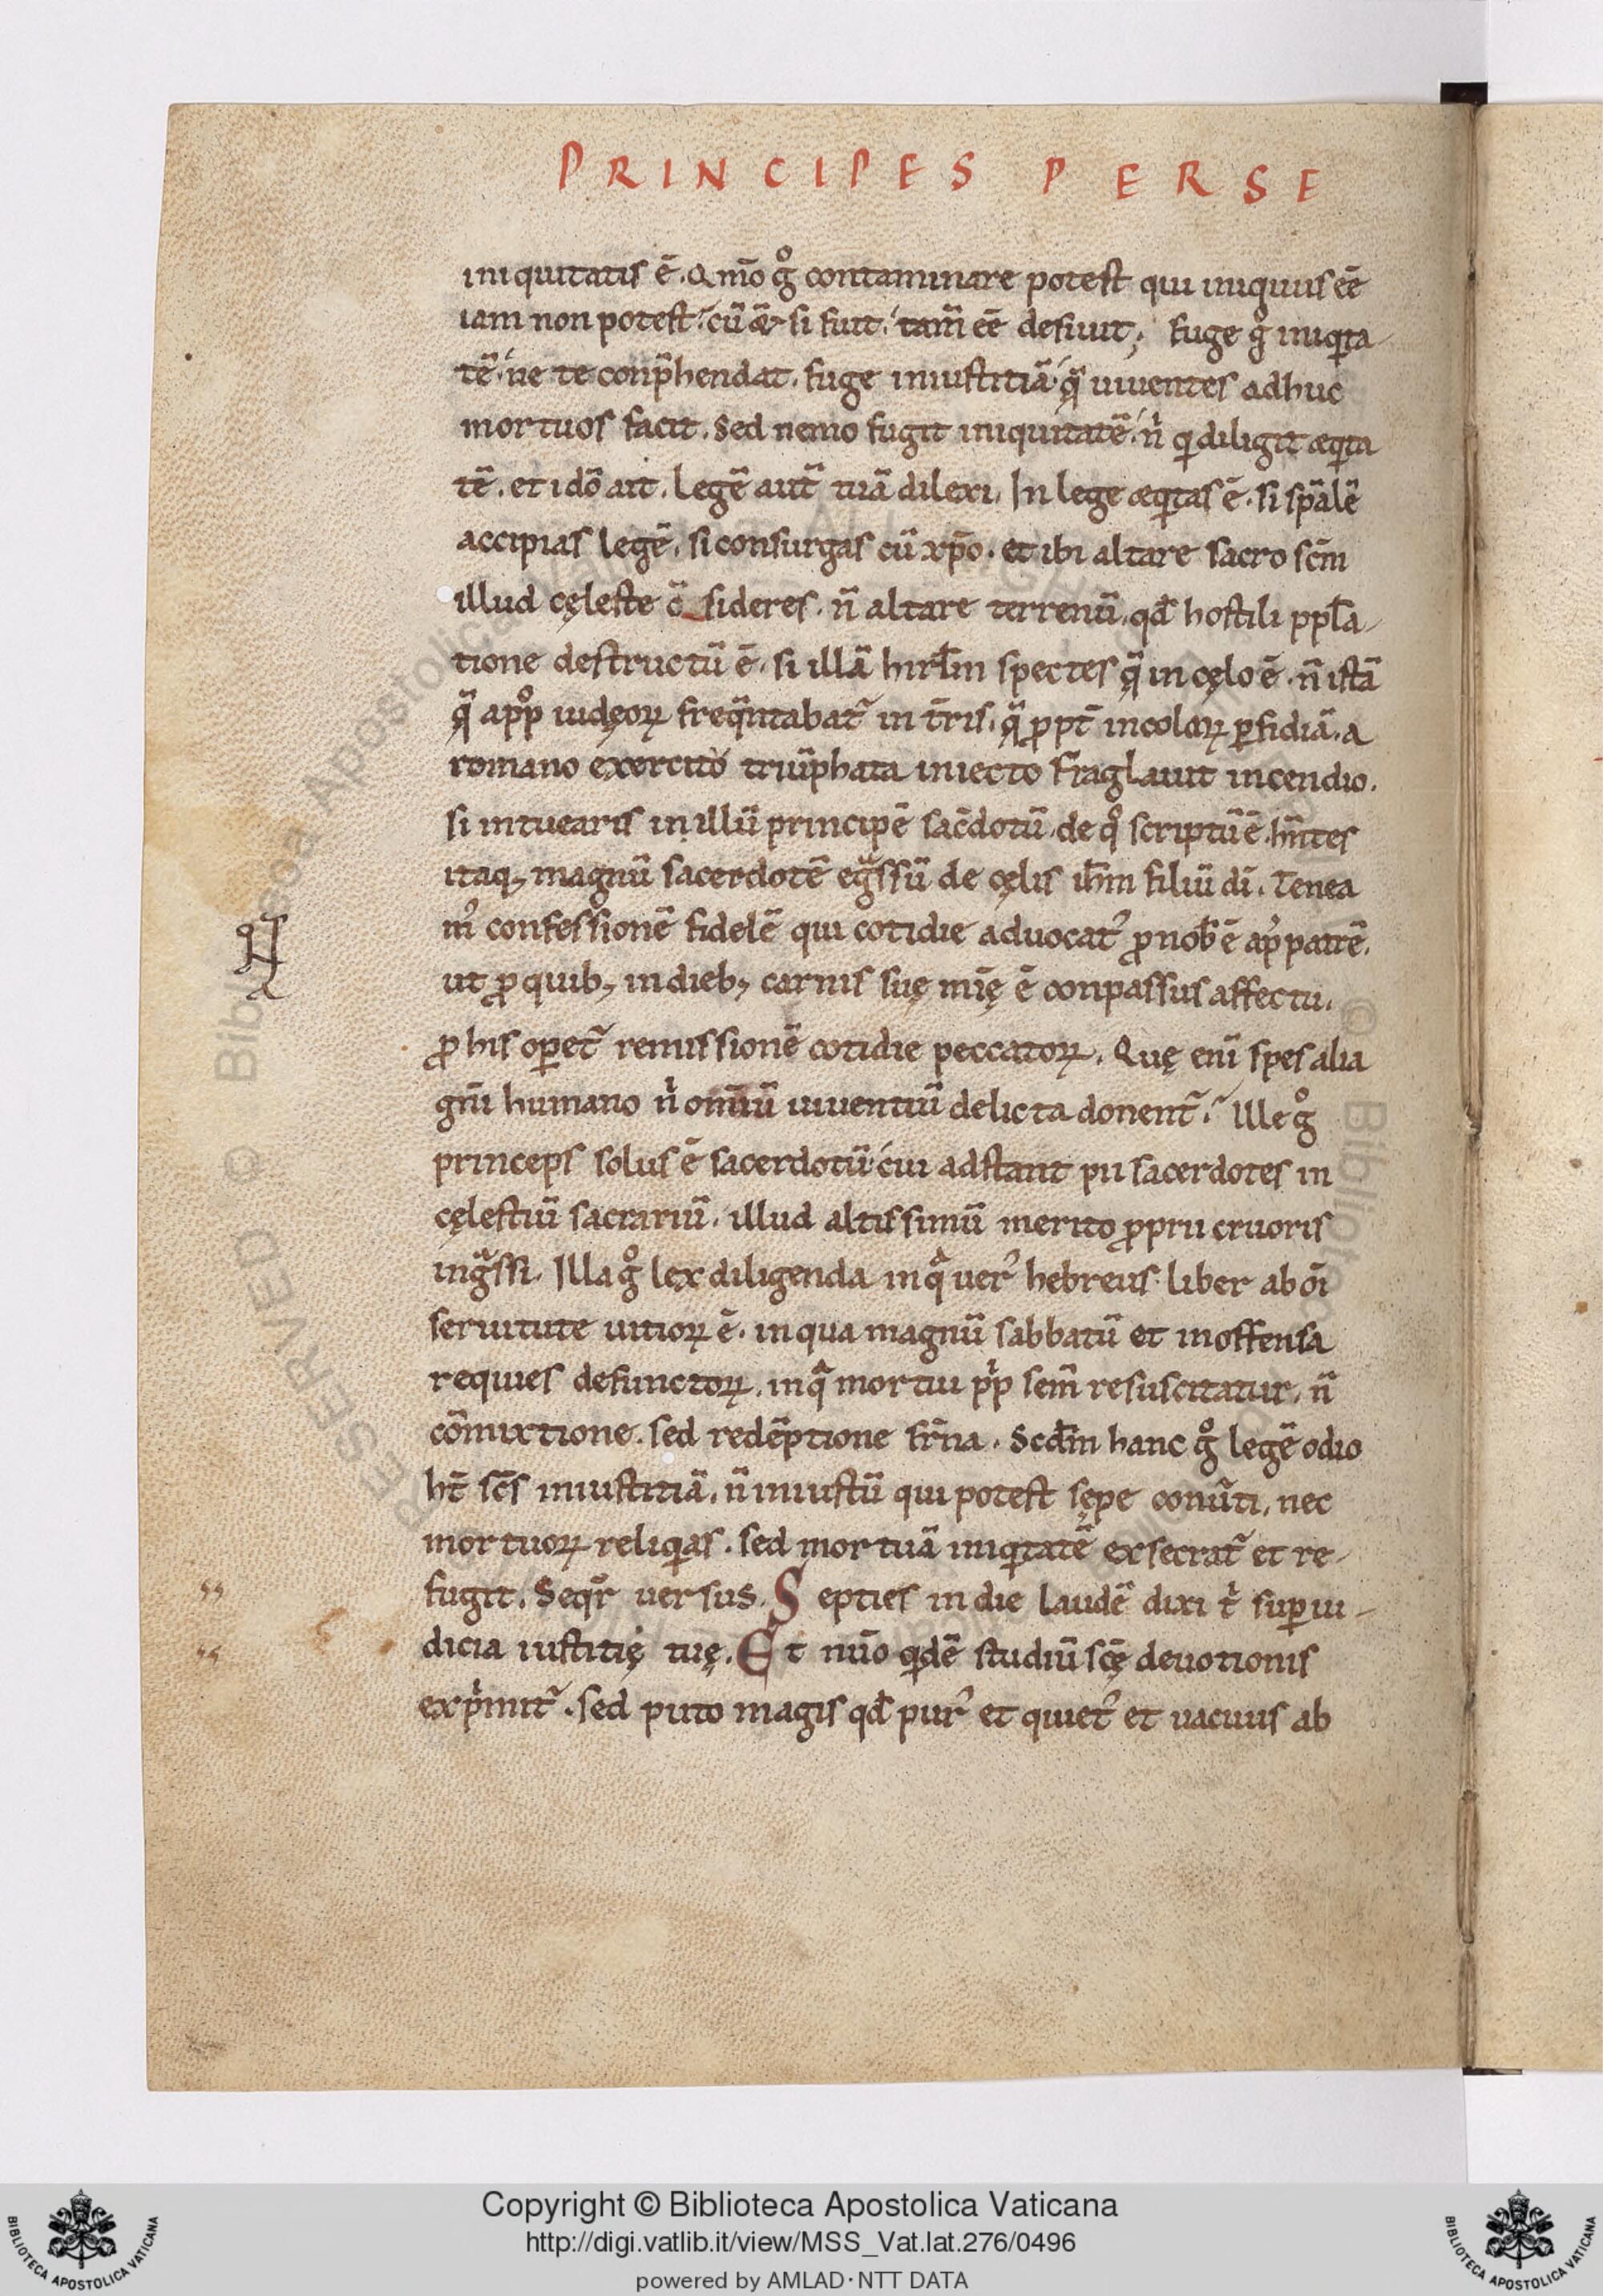 PRINCIPES PERSE
iniquitatis ē. Qmō gͦ contaminare potest qui iniquus eē
iam non potest. cū & si fuit. tam̄ eē desiuit; Fuge gͦ iniqͥta-
tē. ne te conp̄hendat. fuge iniustitiā. qͣ̄ uiuentes adhuc
mortuos facit. Sed nemo fugit iniquitatē. nͥ qͥ diligit æqͥta
tē. et idō ait. Legē aut̄ tuā dilexi. In lege æqͥtas ē. si sp̄alē
accipias legē. si consurgas cū xp̄o. et ibi altare sacro sc̄m
illud cęleste c̄sideres. n̄ altare terrenū. qđ hostili ppl̄a-
tione destructū ē. si illā hirl̄m spectes qͣ̄ in cęlo ē. n̄ istā
qͣ̄ a pp̊ iudęoꝝ freq̄ntabat᷑ in t̄ris. qͣ̄ ꝓpt̄ incolaꝝ ꝑfidiā. a
romano exercito triūphata iniecto fraglauit incendio.
si intuearis in illū principē sac̄dotū. de qͦ scriptū ē. hn̄tes
itaq; magnū sacerdotē egͣssū de cęlis ih̄m filiū dī. Tenea
mꝰ confessionē fidelē qui cotidie aduocatꝰ ꝓ nob̄ ē apͩ patrē.
ut ꝓ quib; in dieb; carnis suę mīę ē conpassus affectu.
ꝓ his oꝑet᷑ remissionē cotidie peccatoꝝ. Quę enī spes alia
gn̄i humano nͥ omīū uiuentiū delicta donent᷑. Ille gͦ
princeps solus ē sacerdotū. cui adstant pii sacerdotes in
cęlestiū sacrariū. illud altissimū merito ꝓprii cruoris
ingͣssi. Illa gͦ lex diligenda in qͣ uerꝰ hebreus. liber ab oī
seruitute uitioꝝ ē. in qua magnū sabbatū et inoffensa
requies defunctoꝝ. in qͣ mortui pͥp sem̄ resuscitatur. n̄
cōmixtione. sed redēptione fr̄na. Scđm hanc gͦ legē odio
ht̄ sc̄s iniustitiā. n̄ iniustū qui potest sępe conūti. nec
mortuoꝝ reliqͥas. sed mortuā iniqͥtatē exsecrat᷑ et re-
fugit. Seqr᷑ uersus. Septies in die laudē dixi tͥ suꝑ iu-
dicia iustitię tuę. Et nūo qͥdē studiū sc̄ę deuotionis
expͥmit᷑. sed puto magis qđ purꝰ et quietꝰ et uacuus ab
Copyright © Biblioteca Apostolica Vaticana
http://digi.vatlib.it/view/MSS_Vat.lat.276/0496
powered by AMLAD·NTT DATA
BIBLIOTECA APOSTOLICA VATICANA
BIBLIOTECA APOSTOLICA VATICANA